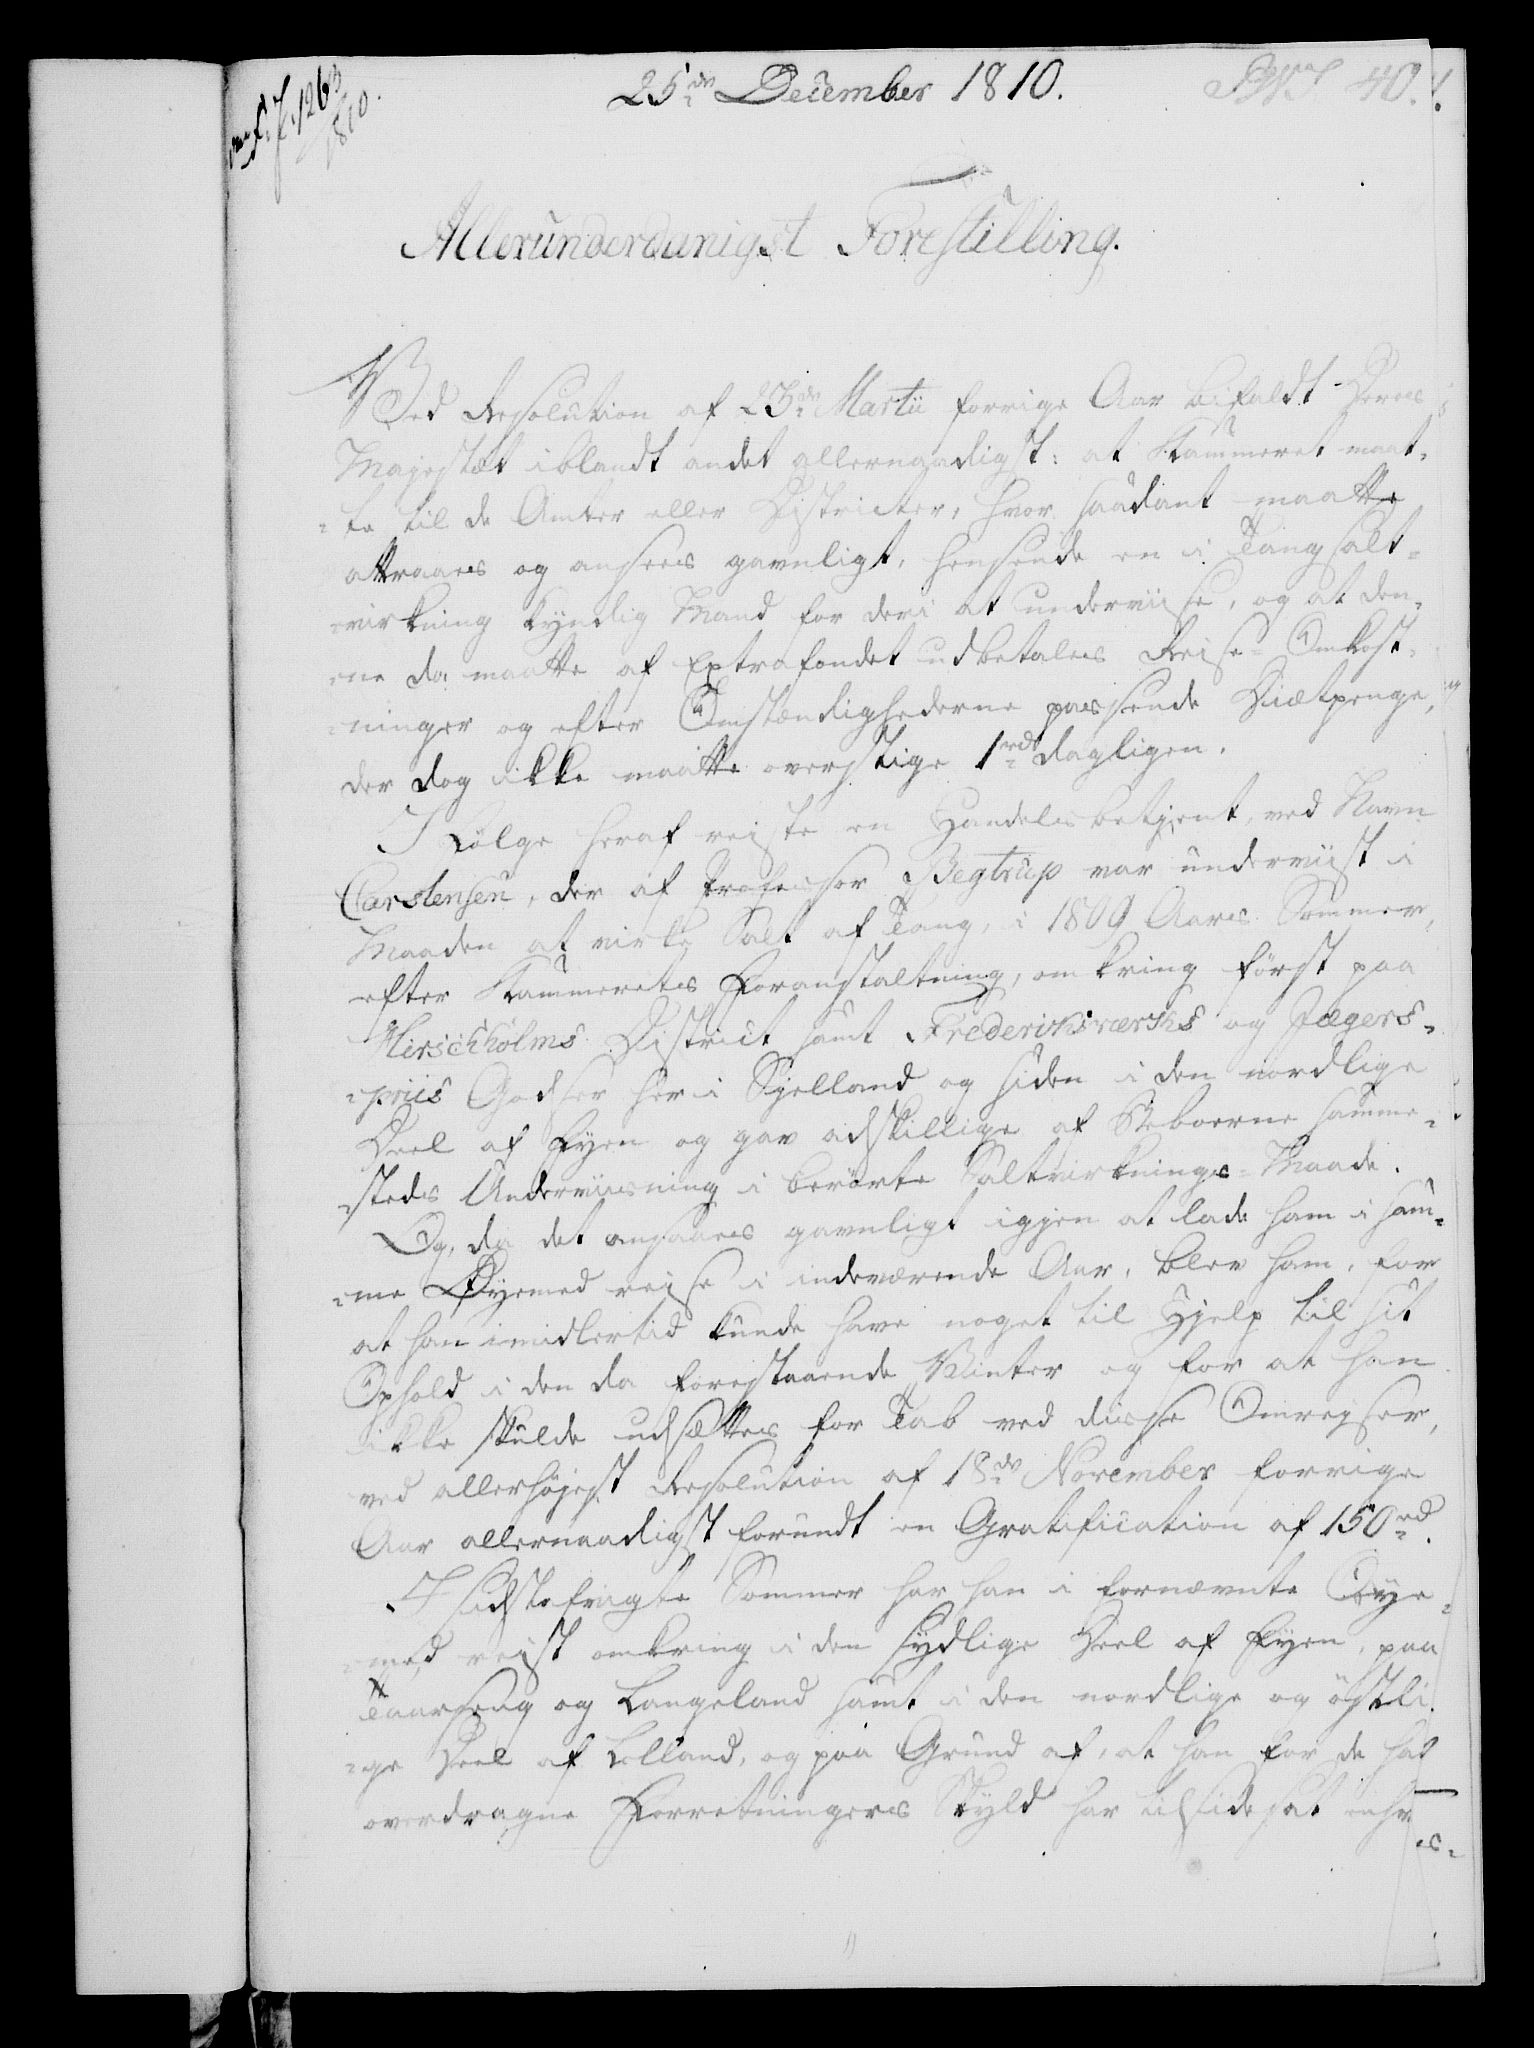 25de December 1810.
No 40.
1263
1810.
Allerunderdanigst Forestilling.
Ved Resolution af 23de Martii forrige Aar bifaldt Deres
Majestæt iblandt andet allernaadigst: at Kammeret maat-
te til de Amter eller Districter, hvor saadant maatte
attraaes og ansees gavnligt, hensende en i Tangsalt-
virkning kyndig Mand for deri at underviise, og at den-
ne da maatte af Extrafondet udbetales Reise-Omkost-
ninger og efter Omstændighederne passende Diætpenge,
der dog ikke maatte overstige 1rd dagligen.
I Følge heraf reiste en Handelsbetjent, ved Navn
Carstensen, der af Professor Begtrup var underviist i
Maaden at virke Salt af Tang, i 1809 Aars Sommer,
efter Kammerets Foranstaltning, omkring først paa
Hirschholms District samt Frederiksværks og Jægers-
priis Godser her i Sjelland og siden i den nordlige
Deel af Fyen og gav adskillige af Beboerne samme-
steds Underviisning i berørte Saltvirknings-Maade.
Og, da det ansaaes gavnligt igjen at lade ham i sam-
me Øyemed reise i indeværende Aar, blev ham, for
at han imidlertid kunde have noget til Hjelp til sit
Ophold i den da forestaaende Vinter og for at han
ikke skulde udsættes for Tab ved disse Omreiser,
ved allerhøjest Resolution af 18de November forrige
Aar allernaadigst forundt en Gratification af 150rd.
I sidstafvigte Sommer har han i fornævnte Øye-
med reist omkring i den sydlige Deel af Fyen, paa
Taarseng og Langeland samt i den nordlige og østli-
ge Deel af Lolland, og paa Grund af, at han for de ha
overdragne Forretningers Skyld har tilsidesat